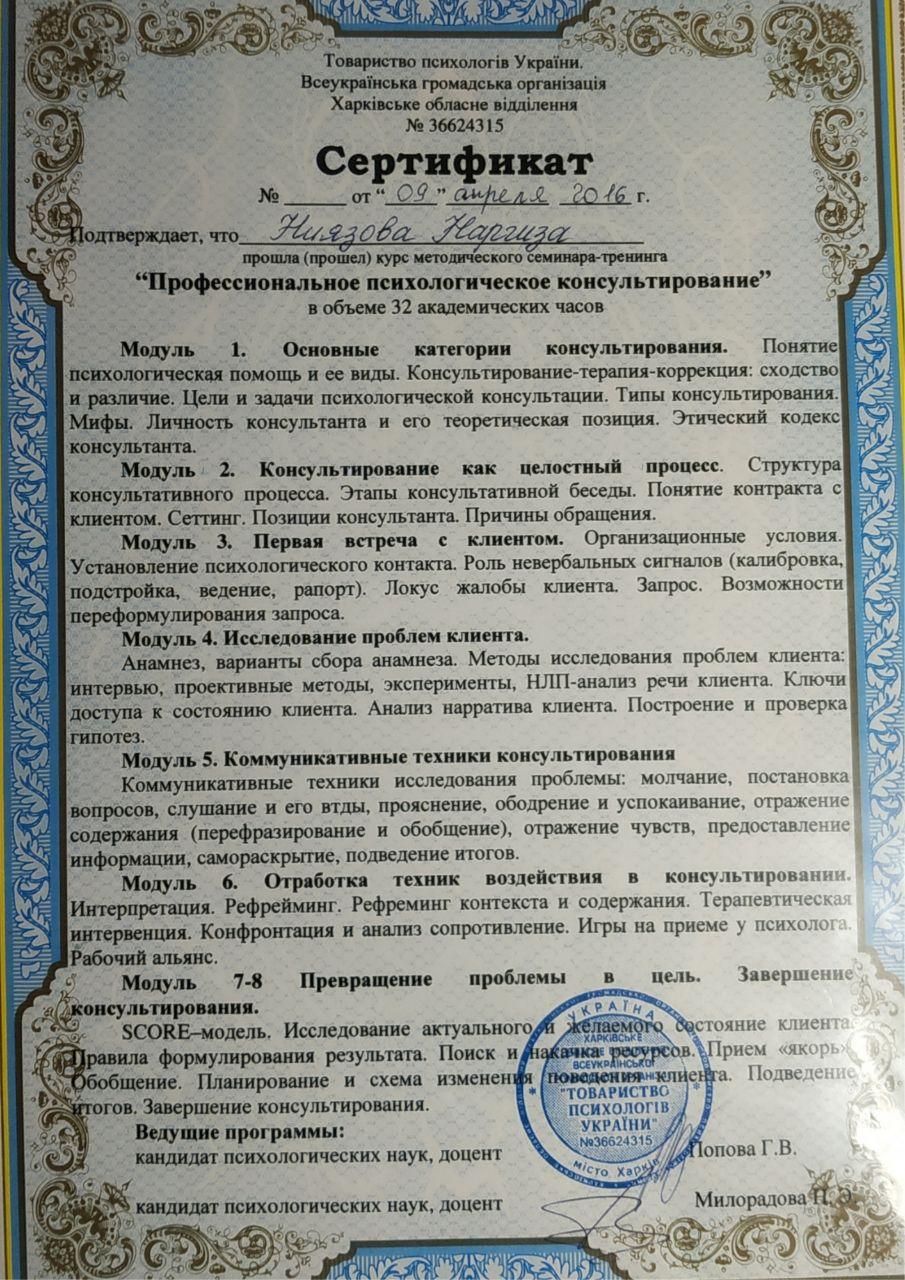 Товариство психологів України.
Всеукраїнська громадська організація
Харківське обласне відділення
№ 36624315
Сертификат
№ ______ от “ 09 ” апреля 2016 г.
Подтверждает, что Ниязова Наргиза
прошла (прошел) курс методического семинара-тренинга
“Профессиональное психологическое консультирование”
в объеме 32 академических часов
Модуль 1. Основные категории консультирования. Понятие
психологическая помощь и ее виды. Консультирование-терапия-коррекция: сходство
и различие. Цели и задачи психологической консультации. Типы консультирования.
Мифы. Личность консультанта и его теоретическая позиция. Этический кодекс
консультанта.
Модуль 2. Консультирование как целостный процесс. Структура
консультативного процесса. Этапы консультативной беседы. Понятие контракта с
клиентом. Сеттинг. Позиции консультанта. Причины обращения.
Модуль 3. Первая встреча с клиентом. Организационные условия.
Установление психологического контакта. Роль невербальных сигналов (калибровка,
подстройка, ведение, рапорт). Локус жалобы клиента. Запрос. Возможности
переформулирования запроса.
Модуль 4. Исследование проблем клиента.
Анамнез, варианты сбора анамнеза. Методы исследования проблем клиента:
интервью, проективные методы, эксперименты, НЛП-анализ речи клиента. Ключи
доступа к состоянию клиента. Анализ нарратива клиента. Построение и проверка
гипотез.
Модуль 5. Коммуникативные техники консультирования
Коммуникативные техники исследования проблемы: молчание, постановка
вопросов, слушание и его втды, прояснение, ободрение и успокаивание, отражение
содержания (перефразирование и обобщение), отражение чувств, предоставление
информации, самораскрытие, подведение итогов.
Модуль 6. Отработка техник воздействия в консультировании.
Интерпретация. Рефрейминг. Рефреминг контекста и содержания. Терапевтическая
интервенция. Конфронтация и анализ сопротивление. Игры на приеме у психолога.
Рабочий альянс.
Модуль 7-8 Превращение проблемы в цель. Завершение
консультирования.
SCORE–модель. Исследование актуального и желаемого состояние клиента.
Правила формулирования результата. Поиск и накачка ресурсов. Прием «якорь».
Обобщение. Планирование и схема изменения поведения клиента. Подведение
итогов. Завершение консультирования.
Ведущие программы:
кандидат психологических наук, доцент Попова Г.В.
кандидат психологических наук, доцент Милорадова Н. Э.
УКРАЇНА
ХАРКІВСЬКЕ
ВСЕУКРАЇНСЬКОЇ
"ТОВАРИСТВО
ПСИХОЛОГІВ
УКРАЇНИ"
№36624315
місто Харків